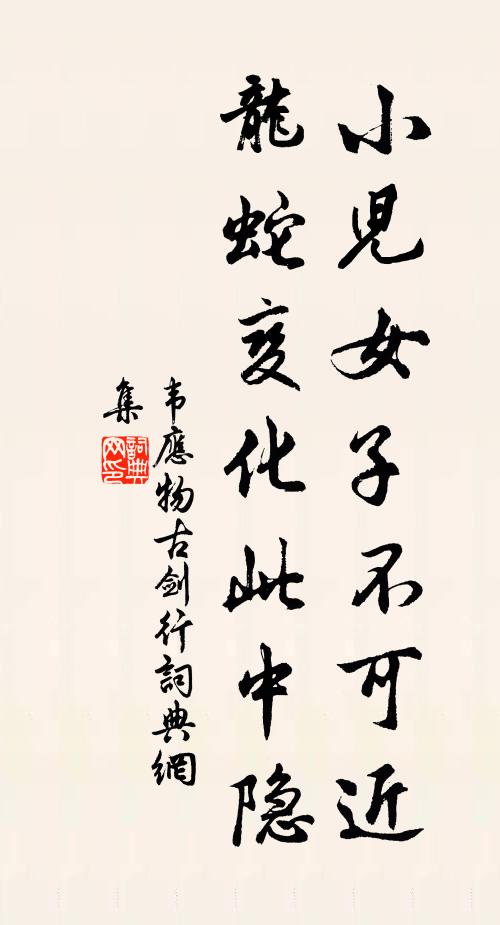 小兒女子不可近
龍蛇变化此中隐
韦應物古剑行詞典網
集
詞典网印